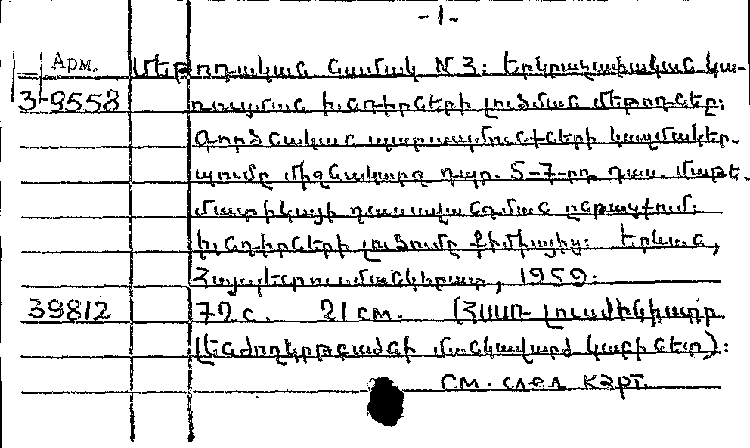 -1-
Арм. Մեթոդական նամակ N 3: Երկրաչափական կա-
3-9558 ռուցման խնդիրների լուծման մեթոդները:
Գործնական պարապմունքների կազմակեր-
պումը միջնակարգ դպր. 5-7-րդ դաս. մաթե-
մատիկայի դասավանդման ընթացքում:
Խնդիրների լուծումը քիմիայից: Երևան,
Հայպետուսմանկհրատ, 1959:
39812 72 с. 21 см. (ՀՍՍՌ Լուսմինիստր.
Լենժողկրթբաժնի մանկավարժ կաբինետ):
См. след карт.